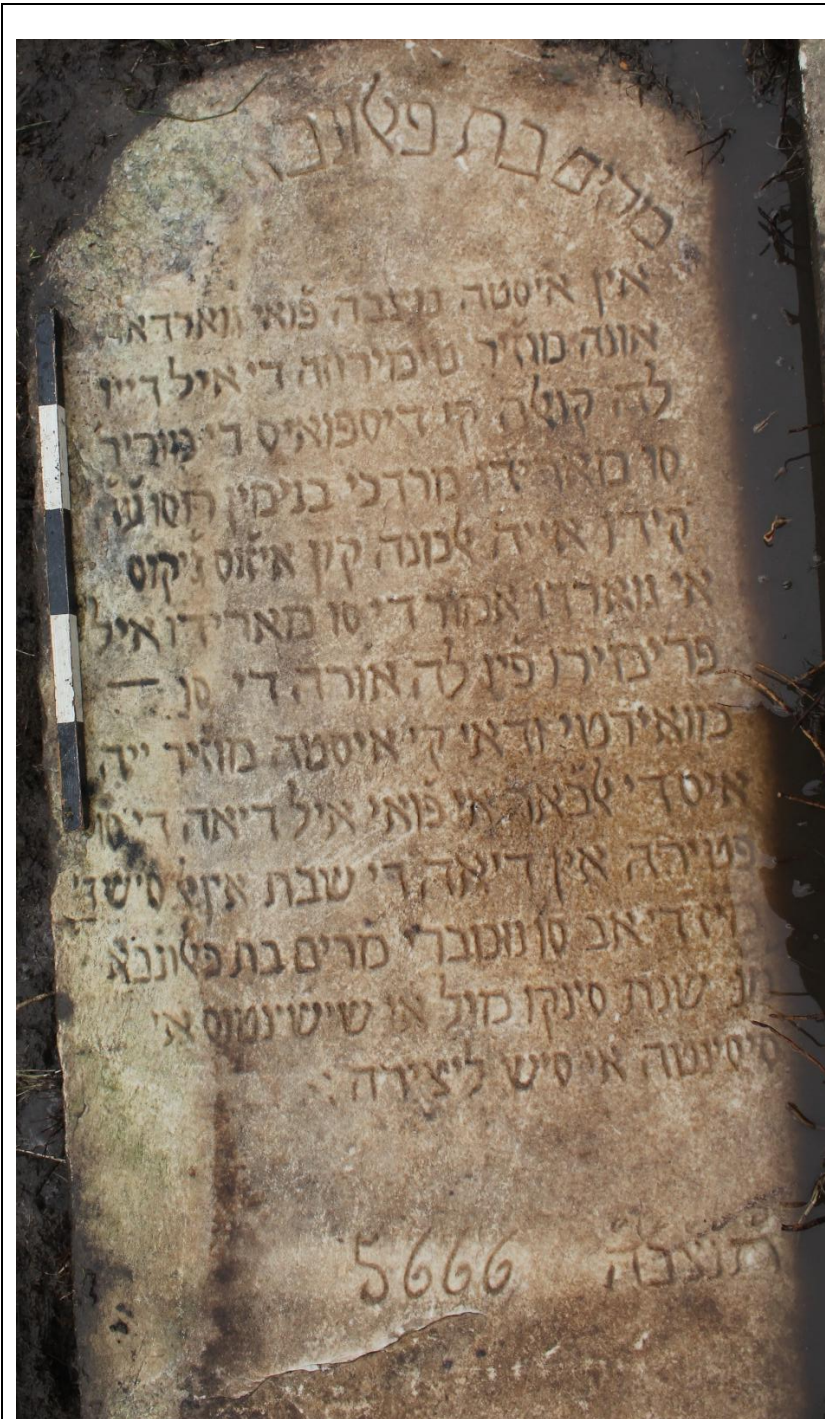 מרים בת פﭏונבא
אין איסטה מצבה פואי גוארדאדה
אונה מוזיר טימירוזה די איל דייו
לה קוﭏה קי דיספואיס די מוריר
סו מארידו מרדכי בנימין רוסו
קידו אייה ﭏמנה קון איזוס
אי גוארדו אמור די סו מארידו איל
פרימירו פין לה אורה די סו
מואירטי ודאי קי איסטה מוזיר ייה
איס די ﭏבאר אי פואי איל דיאה די סו
פטירה אין דיאה די שבת אין סיש די
די אב סו נומברי מרים בת פﭏונבא
שנת סינקו מיל או שישינטוס אי
סיסינטה אי סיש ליצירה:
תנצבה 5666